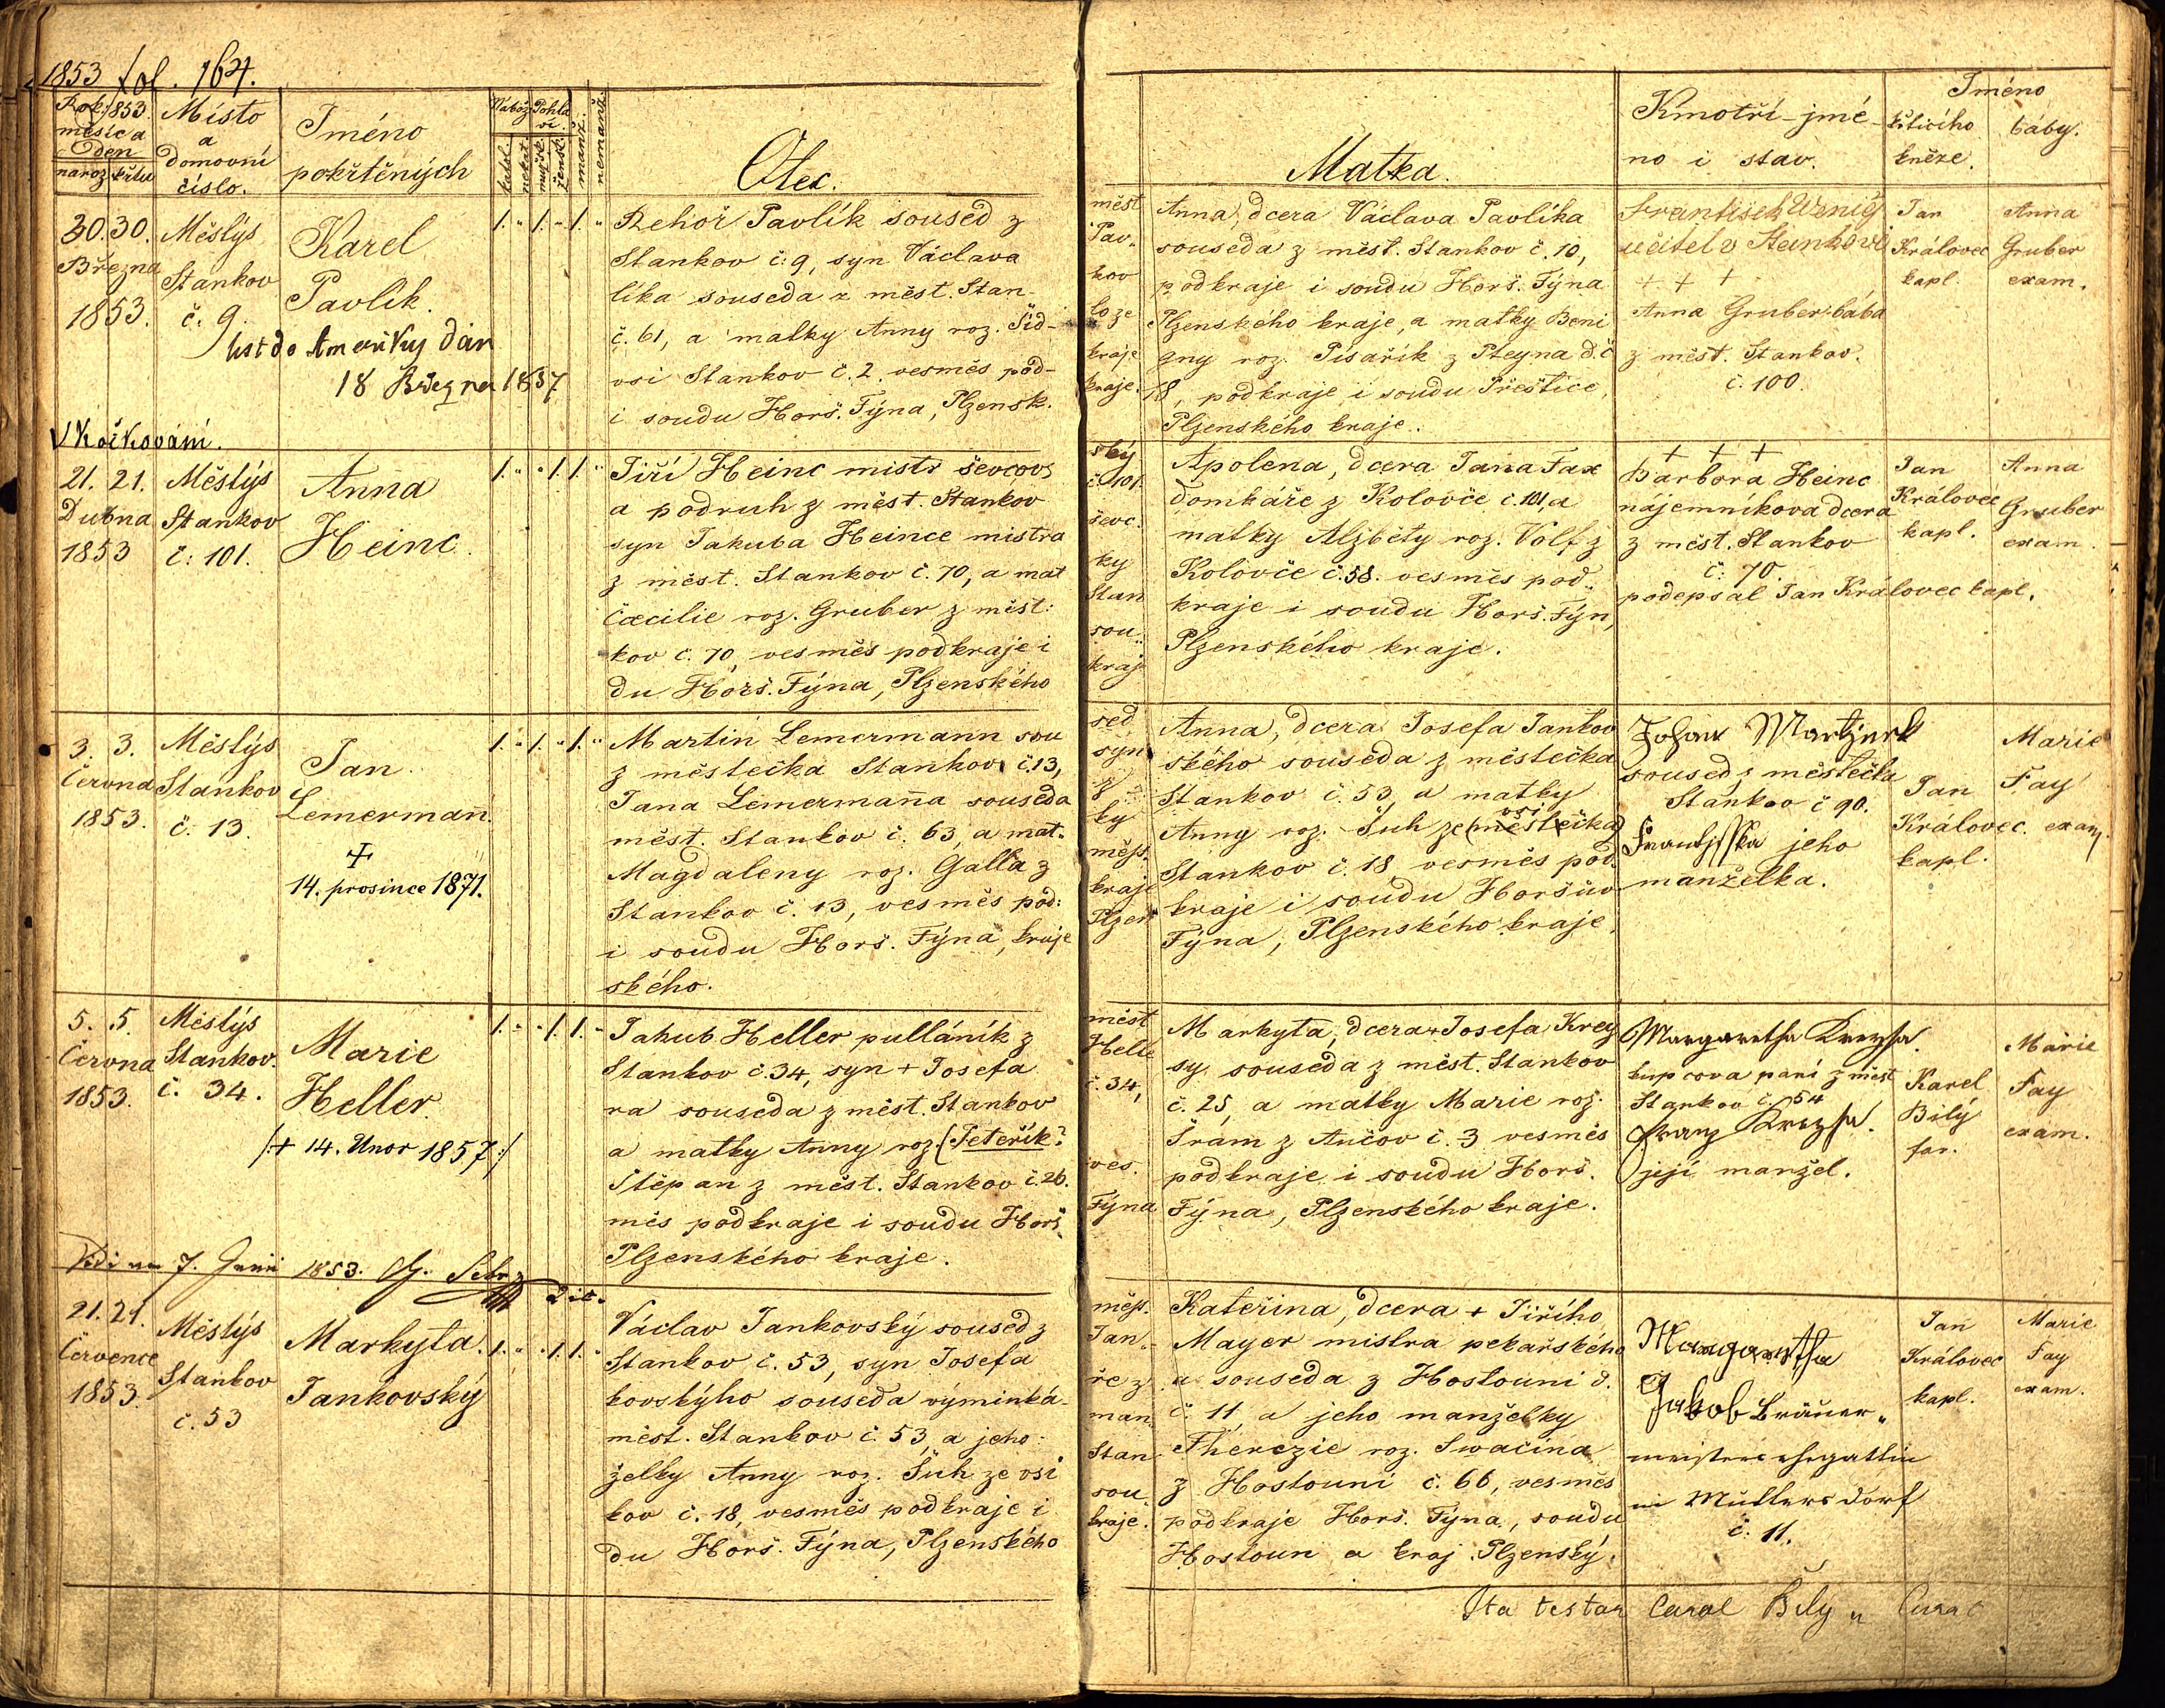 1853 fol. 164.
Rok 1853. měsíc a den
naroz. křtu
Místo a domovní číslo.
Jméno pokřtěných
Nábož.
Pohlaví.
katol.
nekat.
mužsk.
žensk.
manž.
nemanž.
Otec.
Matka.
Kmotři jmé-
no i stav.
Jméno
křticího kněze.
báby.
30. 30.
Března
1853.
Městys
Stankov
č. 9.
Karel
Pavlík.
list do Ameriky dán
18 Března 1857
1. " 1. " 1. "
Řehoř Pavlík soused z měst
Stankov č. 9, syn Václava Pav„
líka souseda z měst. Stan- kov
č. 61, a matky Anny roz. Sid- lo ze
vsi Stankov č. 2. vesměs pod- kraje
i soudu Horš. Týna, Plzensk. kraje.
Anna, dcera Václava Pavlíka
souseda z měst. Stankov č. 10,
podkraje i soudu Horš. Týna
Plzenského kraje, a matky Beni
gny roz. Pisařík z Pteyna d. č
18, podkraje i soudu Přeštice,
Plzenského kraje.
František Wenig
učitel v Stankově
+ + +
Anna Gruber bába
z měst. Stankov.
č. 100.
Jan
Královec
kapl.
Anna
Gruber
exam.
Okočkování.
21. 21.
Dubna
1853
Městys
Stankov
č: 101.
Anna
Heinc.
1. " " 1. 1. "
Jiří Heinc mistr ševcovs ský
a podruh z měst. Stankov č. 101.
syn Jakuba Heince mistra ševc.
z měst. Stankov č. 70, a mat ky
Cæcilie roz. Gruber z měst: Stan
kov č. 70, vesměs podkraje i sou„
du Horš. Týna, Plzenského kraj
Apolena, dcera Jana Fax
domkáře z Kolovče č. 101, a
matky Alžběty roz. Volf z
Kolovče č. 58. vesměs pod„
kraje i soudu Horš. Týn,
Plzenského kraje.
+ + +
Barbora Heinc
nájemníkova dcera
z měst. Stankov
č: 70.
podepsal Jan Královec kapl.
Jan
Královec
kapl.
Anna
Gruber
exam.
3. 3.
Června
1853.
Městys
Stankov
č. 13.
Jan
Lemermañ.
+
14. prosince 1871.
1. " 1. " 1. "
Martin Lemermann sou sed
z městečka Stankov č. 13, syn
Jana Lemermaña souseda z
měst. Stankov č. 63, a mat- ky
Magdaleny roz. Galla z měst.
Stankov č. 13, vesměs pod: kraje
i soudu Horš. Týna, kraje Plzeň
ského.
Anna, dcera Josefa Jankov
ského souseda z městečka
Stankov č. 53, a matky
vsi
Anny roz. Šuh ze (městečka)
Stankov č. 18, vesměs pod.
kraje i soudu Horšův
Týna, Plzenského kraje.
Johan
soused z městečka
Stankov č 90.
Frantjsska jeho
manželka.
Jan
Královec.
kapl.
Marie
Fay
exam.
5. 5.
Června
1853.
Městys
Stankov.
č. 34.
Marie
Heller.
/:+ 14. Unor 1857:/
1. " " 1. 1. "
Jakub Heller pulláník z měst
Stankov č. 34, syn + Josefa Helle
ra souseda z měst. Stankov č. 34,
a matky Anny roz. (Feteřík?
Štěpan z měst. Stankov č. 26. ves.
měs podkraje i soudu Horš. Týna
Plzenského kraje.
Markyta, dcera + Josefa Krey
sy souseda z měst. Stankov
č. 25, a matky Marie roz.
Šrám z Aučov č. 3 vesměs
podkraje i soudu Horš.
Týna, Plzenského kraje.
Margaretha
kupcova paní z měst
Stankov č. 54
Franz
její manžel.
Karel
Bílý
far.
Marie
Fay
exam.
Vidi am 7. Juni 1853.
21. 21.
Července
1853.
Městys
Stankov
č. 53
Markyta.
Jankovský
1. " " 1. 1. "
Václav Jankovský soused z měst.
Stankov č. 53, syn Josefa Jan„
kovskýho souseda výminká- ře z
měst. Stankov č. 53 a jeho man„
želky Anny roz. Šuh ze vsi Stan
kov č. 18, vesměs podkraje i sou„
du Horš. Týna, Plzenského kraje.
Kateřina, dcera + Jiřího
Mayer mistra pekařského
a souseda z Hostouni d.
č. 11, a jeho manželky
Therezie roz. Swačina
z Hostouni č. 66, vesměs
podkraje Horš. Týna, soudu
Hostoun a kraj Plzenský.
Margaretha
Jakob Bräuer„
meisters ehegattin
in Müllersdorf
č. 11.
Jan
Královec
kapl.
Marie
Fay
exam.
Ita testor Carol Bily Curat